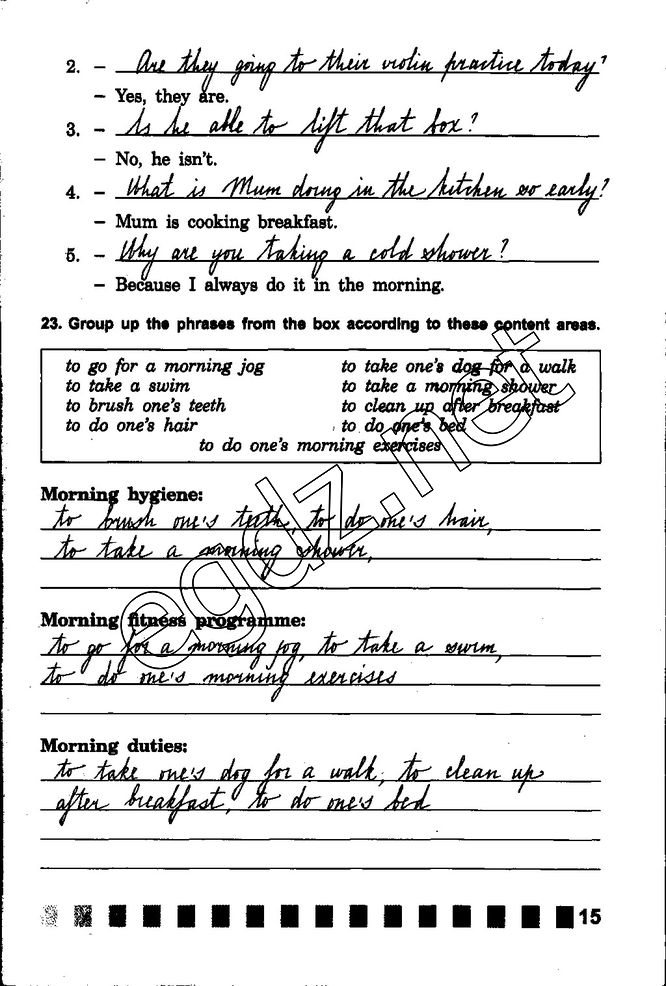 2. – Are they going to their violin practice today?
– Yes, they are.
3. – Is he able to lift that box?
– No, he isn't.
4. – What is Mum doing in the kitchen so early?
– Mum is cooking breakfast.
5. – Why are you taking a cold shower?
– Because I always do it in the morning.
23. Group up the phrases from the box according to these content areas.
to go for a morning jog
to take a swim
to brush one's teeth
to do one's hair
to take one's dog for a walk
to take a morning shower
to clean up after breakfast
to do one's bed
to do one's morning exercises
egdz.net
Morning hygiene:
to brush one's teeth, to do one's hair,
to take a morning shower,
Morning fitness programme:
to go for a morning jog, to take a swim,
to do one's morning exercises
Morning duties:
to take one's dog for a walk, to clean up
after breakfast, to do one's bed
15